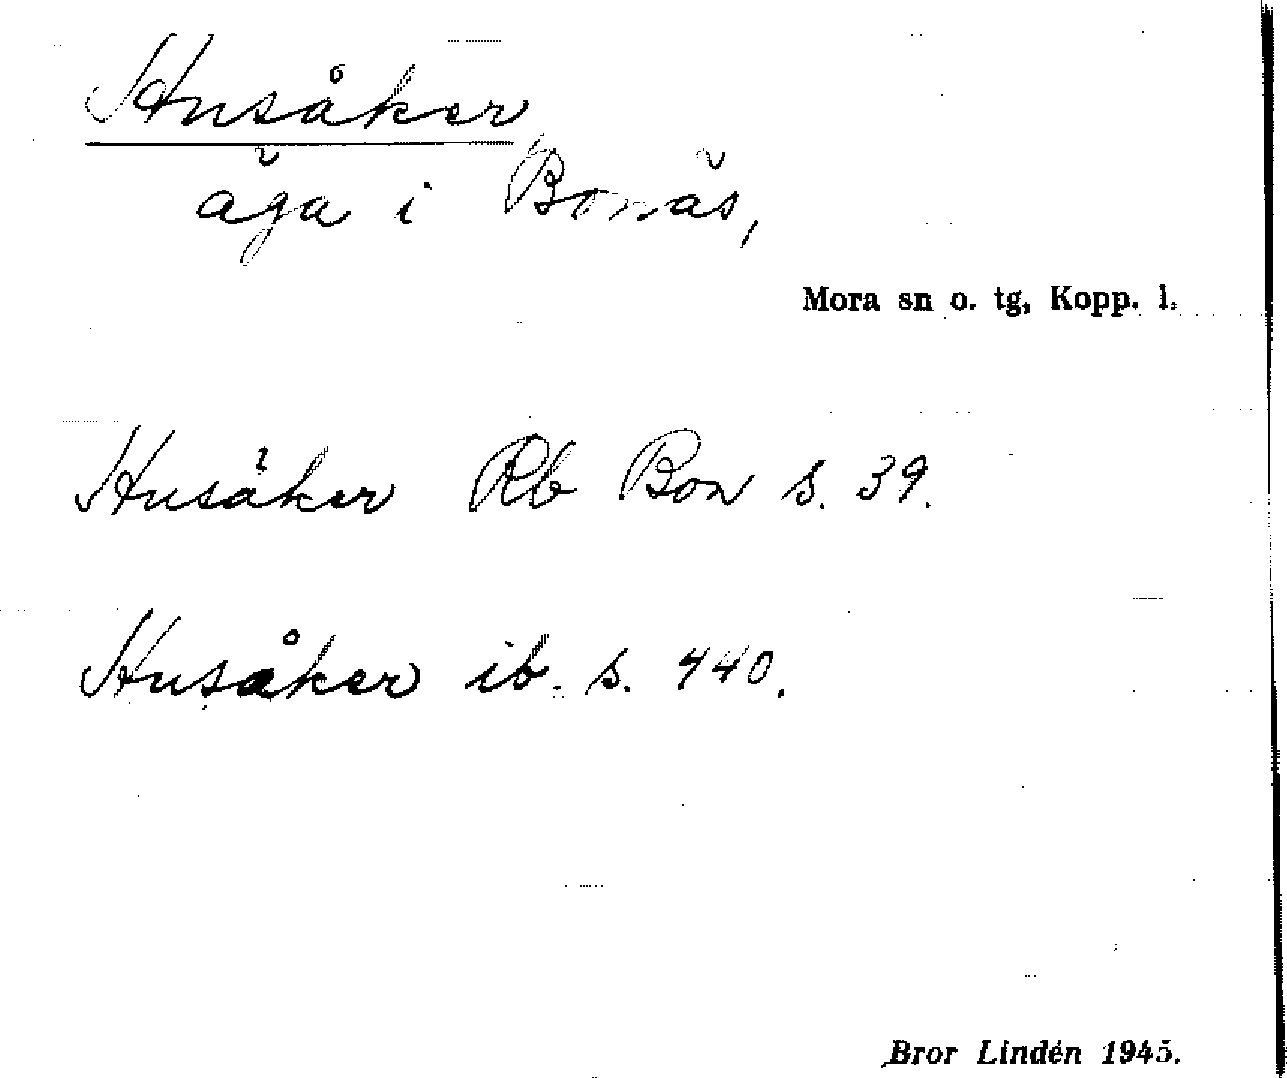 Husåker
äga i Bonäs,
Mora sn o. tg, Kopp. l.
Husäker Rb Bon s. 39.
Husåker ib. s. 440.
Bror Lindén 1945.